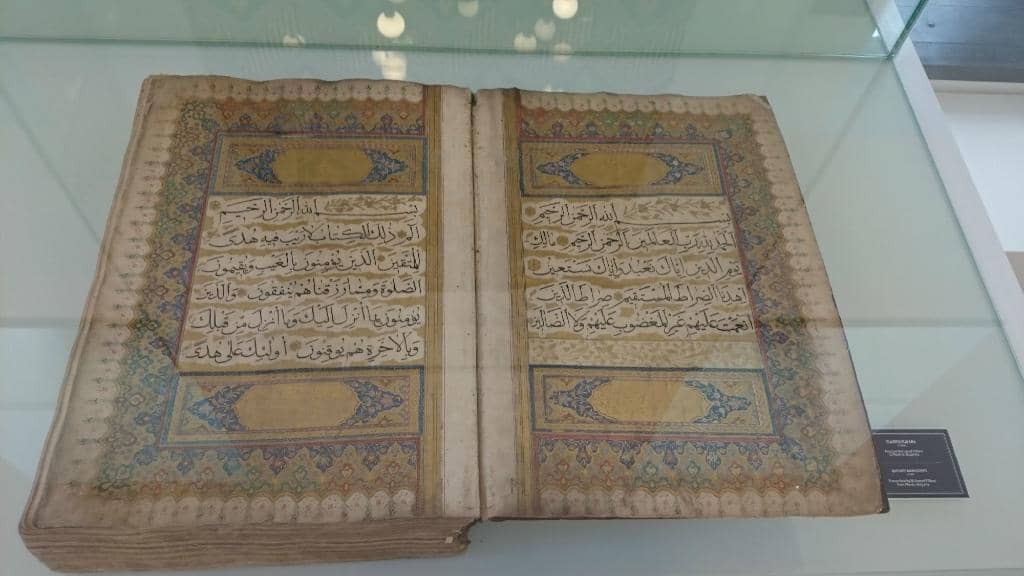 بسم الله الرحمن الرحيم
الحمد لله رب العالمين الرحمن الرحيم مالك
يوم الدين اياك نعبد واياك نستعين
اهدنا الصراط المستقيم صراط الذين
انعمت عليهم غير المغضوب عليهم ولا الضالين
بسم الله الرحمن الرحيم
الم ذلك الكتاب لا ريب فيه هدى
للمتقين الذين يؤمنون بالغيب ويقيمون
الصلوة ومما رزقناهم ينفقون والذين
يؤمنون بما انزل اليك وما انزل من قبلك
وبالاخرة هم يوقنون اولئك على هدى